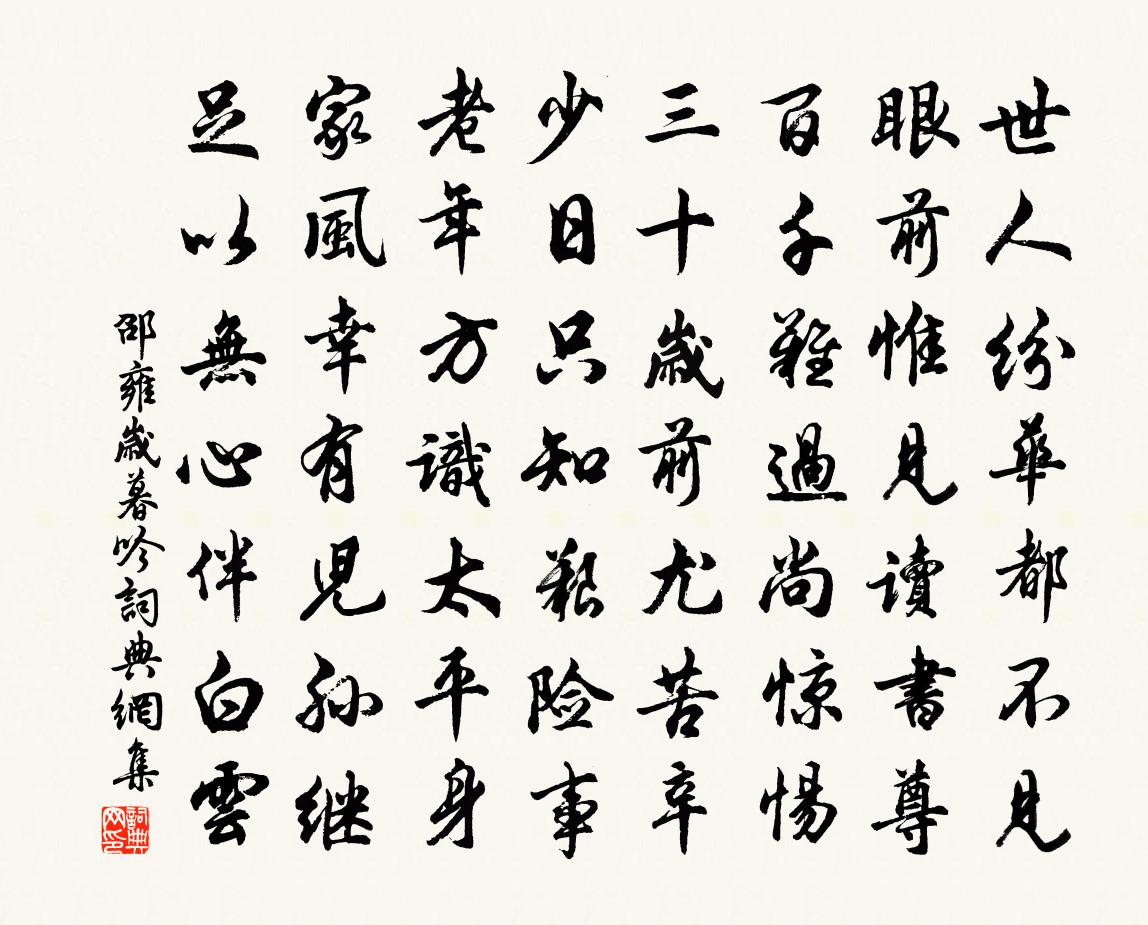 世人纷華都不見
眼前惟見讀書尊
百千難過尚惊惕
三十歲前尤苦辛
少日只知艱险事
老年方識太平身
家風幸有児孙继
足以無心伴白雲
邵雍歲暮吟詞典網集
詞典网印